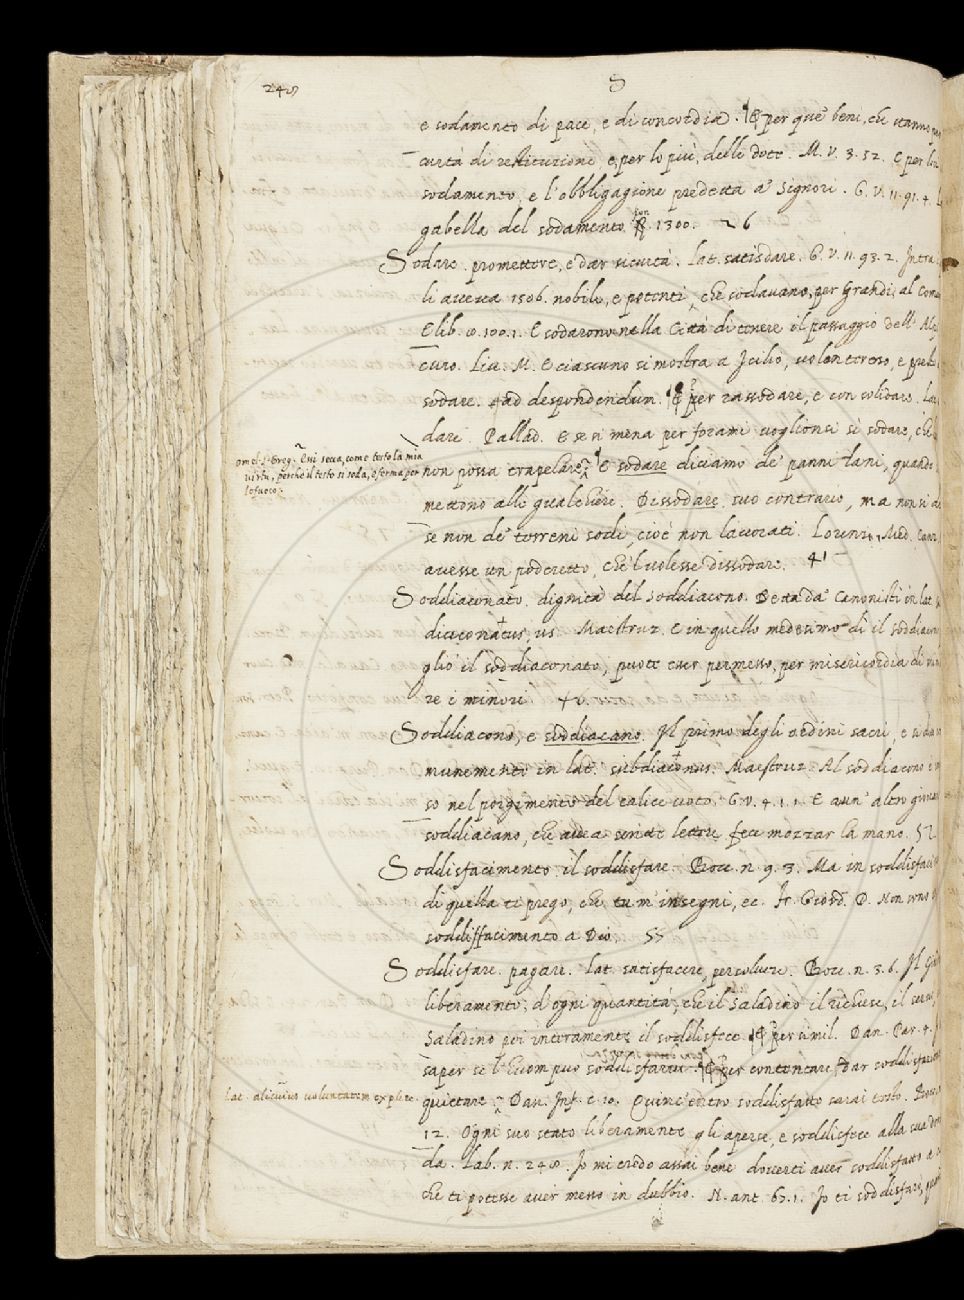 248
S
e sodamento di pace, e di concordia. E per que' beni, che stanno per
curtà di restituzione e, per lo più, delle dote. M. V. 3. 52. E per lo
sodamento, e l'obbligagione predetta a' Signori. G. V. 11. 91. 4. L
gabella del sodamento 1300. 26
Sodare. promettere, e dar sicurtà. Lat. satisdare. G. V. 11. 93. 2. Intra
li aveva 1506. nobili, e potenti, che sodavano, per Grandi, al Com
E lib. 8. 100. 1. E sodarono nella Città di tenere il passaggio dell'
curo. Liv. M. E ciascuno si mostra a Icilio, volonteroso, e
sodare. ad despondendum. E per rassodare, e consolidare. Lat.
dare. Pallad. E se si mena per forami voglionsi sì sodare, che
omel. S. Greg. E si secca, come testo la mia
virtù, perchè il testo si soda, e ferma per
lo fuoco.
non possa trapelare. E sodare diciamo de' panni lani, quando
mettono alle gualchiere. Dissodare suo contrario, ma non si
se non de' terreni sodi, cioè non lavorati. Lorenzo Med. Canz.
avesse un poderetto, che 'l volesse dissodare. 41
Soddiaconato. dignità del soddiacono. Detta da' Canonisti in lat.
diaconatus, us. Maestruz. E in quello medesimo dì il soddiacono
glio il soddiaconato, puote esser permesso, per misericordia di
re i minori. 46.
Soddiacono, e soddiacano. Il primo degli ordini sacri, e si
munemente in lat. subdiaconus. Maestruz. Al soddiacono
so nel porgimento del calice voto. G. V. 4. 1. 1. E a un' altro
soddiacano, che avea scritte lettere fece mozzar la mano. 52
Soddisfacimento. il soddisfare. Bocc. n. 9. 3. Ma in soddisfaci
di quella ti prego, che tu m' insegni, ec. Fr. Giord. P. Non sono
soddisffacimento a Dio. 55
Soddisfare. pagare. Lat. satisfacere, persolvere. Bocc. n. 3. 6. Il
liberamente, d'ogni quantità, che il Saladino il richiese, il servì,
Saladino poi interamente il soddisfece. E per simil. Dan. Par. 4.
saper se l'huom può soddisfarvi. E per contentare, dar soddisfazio
lat. alicuius voluntatem explere.
quietare. Dan. Inf. c. 10. Quinc' entro soddisfatto sarai tosto. Bocc.
12. Ogni suo stato liberamente gli aperse, e soddisfece alla sua
da. Lab. n. 248. Io mi credo assai bene doverti aver soddisfatto a
che ti potesse aver messo in dubbio. N. ant. 65. 1. Io ti soddisfare,